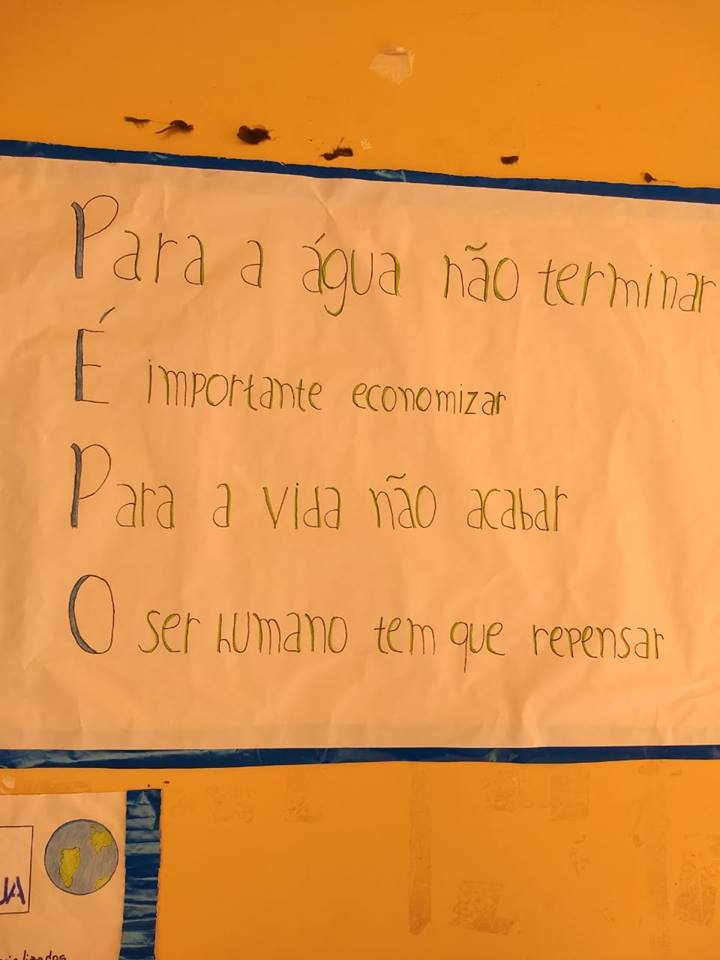 Para a água não terminar
É importante economizar
Para a vida não acabar
O ser humano tem que repensar